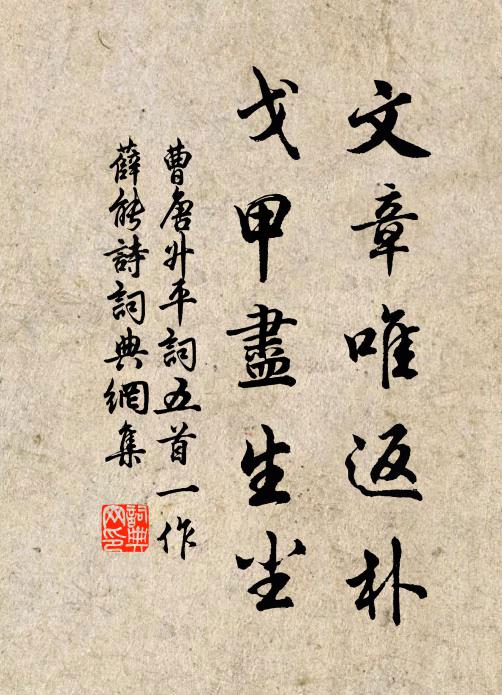 文章唯返朴
戈甲盡生尘
曹唐升平詞五首一作
薛能詩詞典網集
詞典網印